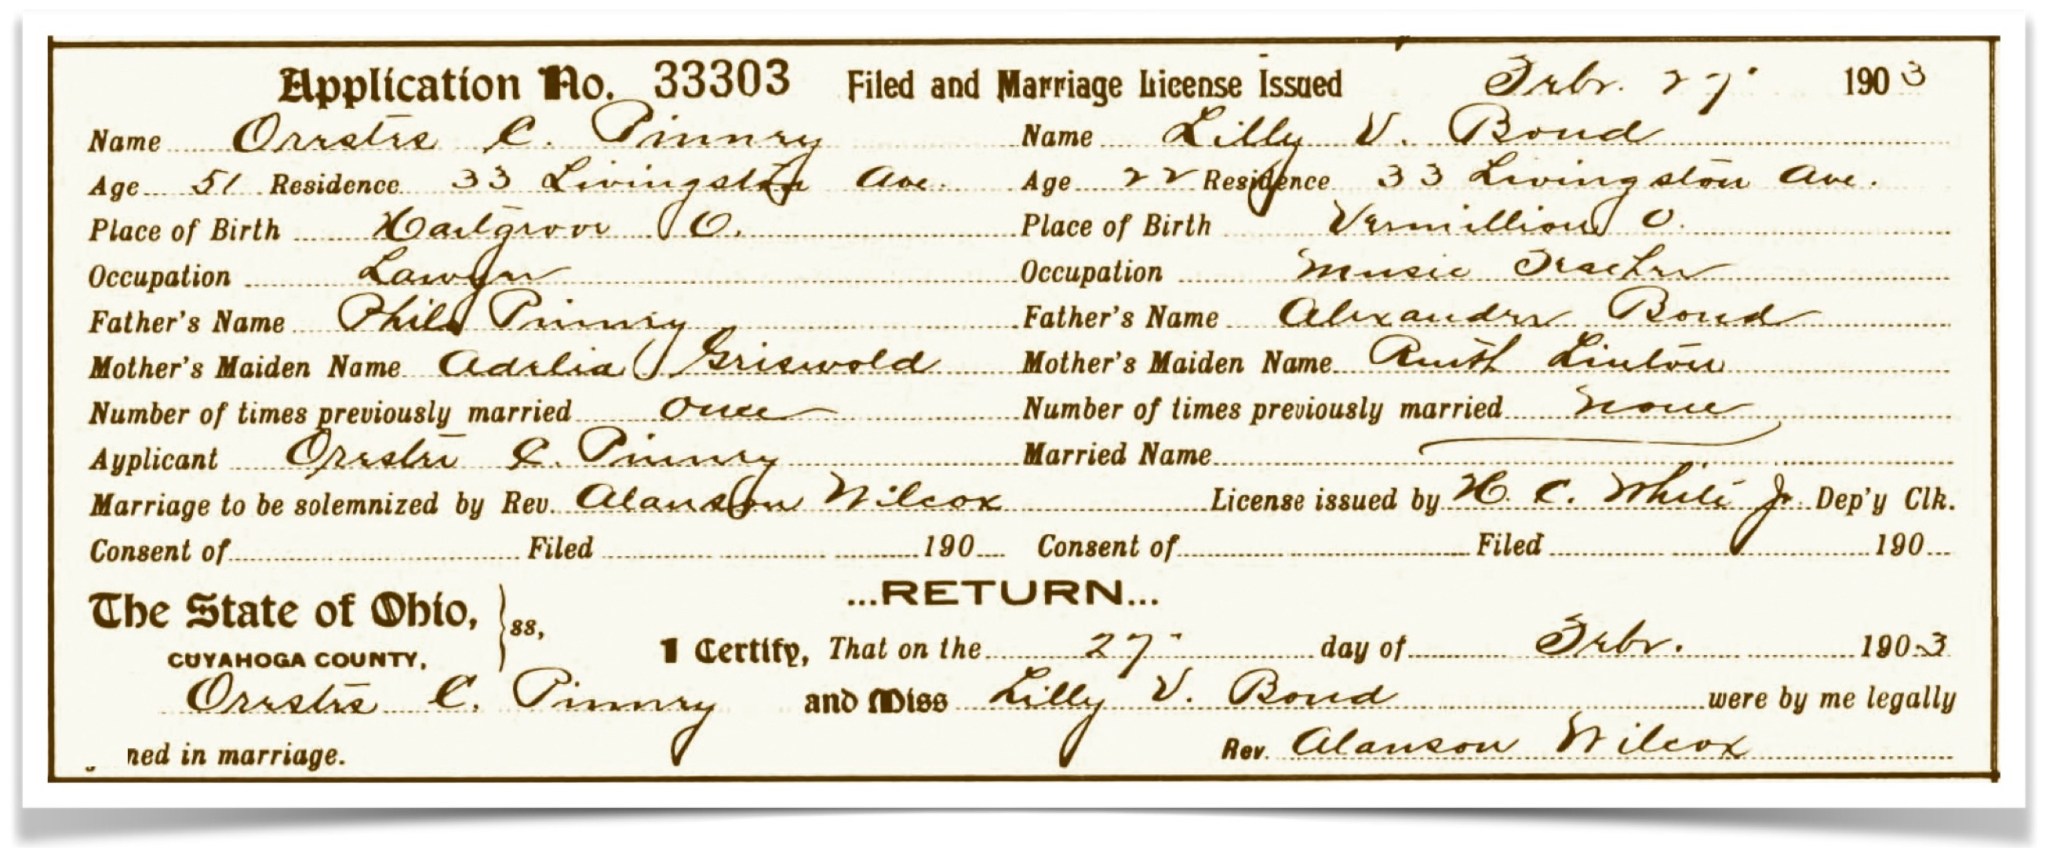 Application No. 33303 Filed and Marriage License Issued Febr. 27 1903
Name Orestes C. Pinney Name Lilly V. Bond
Age 51 Residence 33 Livingston Ave. Age 22 Residence 33 Livingston Ave.
Place of Birth Hartgrove O. Place of Birth Vermillion O.
Occupation Lawyer Occupation Music Teacher
Father's Name Philo Pinney Father's Name Alexander Bond
Mother's Maiden Name Adelia Griswold Mother's Maiden Name Ruth Linton
Number of times previously married once Number of times previously married none
Applicant Orestes C. Pinney Married Name
Marriage to be solemnized by Rev. Alanson Wilcox License issued by H. C. White Jr. Dep'y Clk.
Consent of Filed 190 Consent of Filed 190
...RETURN...
The State of Ohio, ss,
CUYAHOGA COUNTY,
I Certify, That on the 27 day of Febr. 1903
Orestes C. Pinney and Miss Lilly V. Bond were by me legally
ned in marriage. Rev. Alanson Wilcox